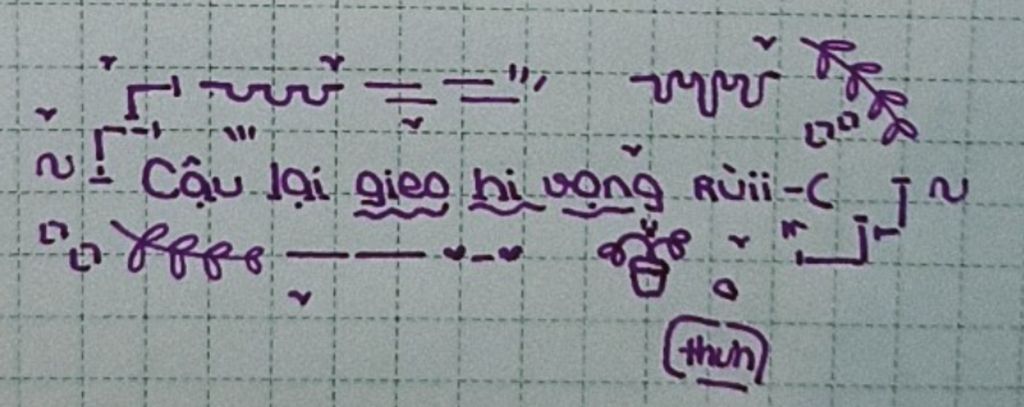 Cậu lại gieo hi vọng Rùii-C
thưn